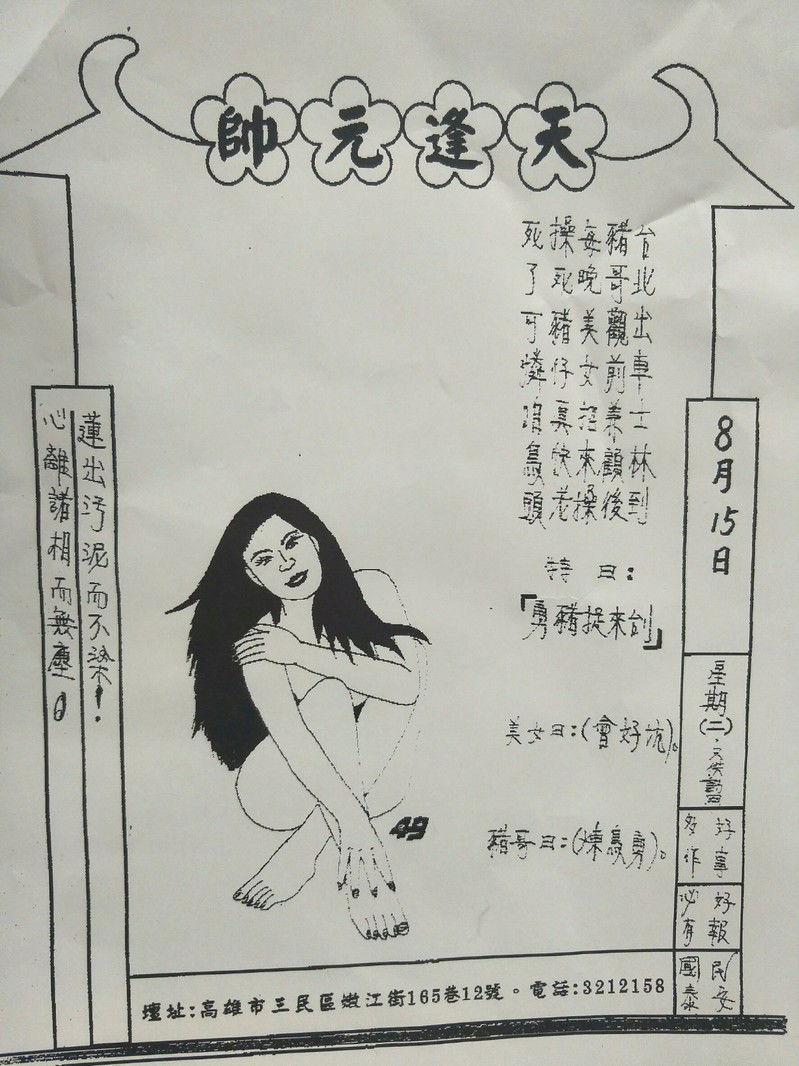 天逢元帥
8月15日
星期(二).
好事
多作
好報
必有
民安
國泰
台北出車士林到
豬哥觀前兼顧後
每晚美女招來操
操死豬仔真快老
死了可憐頭
詩曰:
「勇豬捉來
美女曰:(會好坑)。
豬哥曰:(煉勇)。
49
蓮出污泥而不染!.
心離諸相而無塵。
壇址:高雄市三民區嫩江街165巷12號。電話:3212158